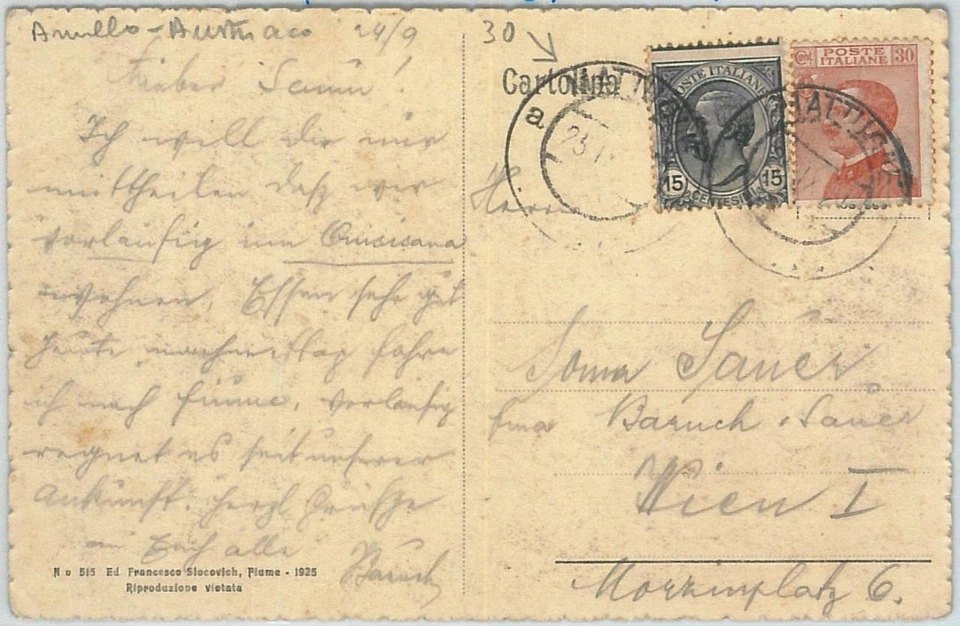 Anullo - Austriaco 24/9 30
Lieber
Ich will dir nur
mittheilen daß wir
vorläufig im
wohnen, Essen sehr gut
heute nachmittag fahre
ich nach Fiume, vorläufig
regnet es seit unserer
Ankunft. herzl Grüße
an Euch alle
Baruch
No 515 Ed Francesco Slocovich, Fiume - 1925
Riproduzione vietata
Cartolina
a
POSTE ITALIANE
15 15
CENTESIMI
POSTE
ITALIANE 30
Herrn
Sauer
Baruch Sauer
Wien I
6.